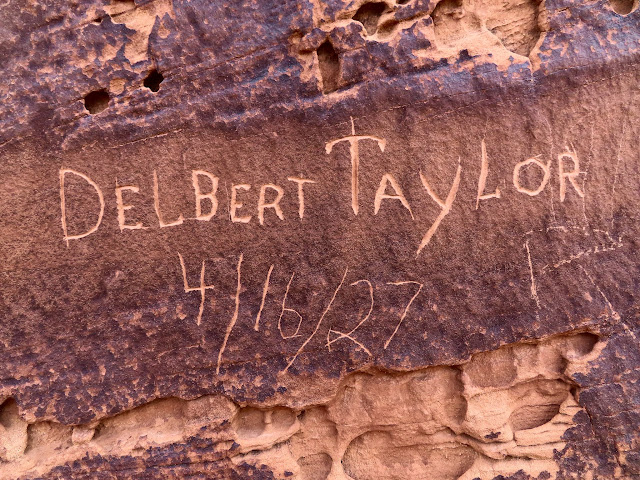 DELBERT TAYLOR
4/16/27